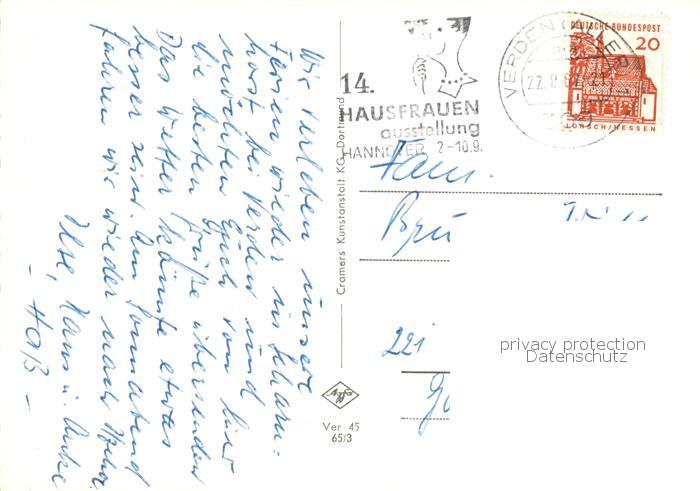 Wir verleben unsere
Ferien wieder in Scharn-
horst bei Verden und
möchten Euch von hier
die besten Grüße übersenden
Das Wetter könnte etwas
besser sein. Am Sonnabend
fahren wir wieder nach
Ilse, Hans u. Anke
14.
HAUSFRAUEN
ausstellung
HANNOVER 2-10.9.
VERDEN (ALLER)
22.8.
DEUTSCHE BUNDESPOST
20
LORSCH/HESSEN
Fam.
Brü
221
Cramers Kunstanstalt KG Dortmund
Agfa
Ver 45
65/3
privacy protection
Datenschutz